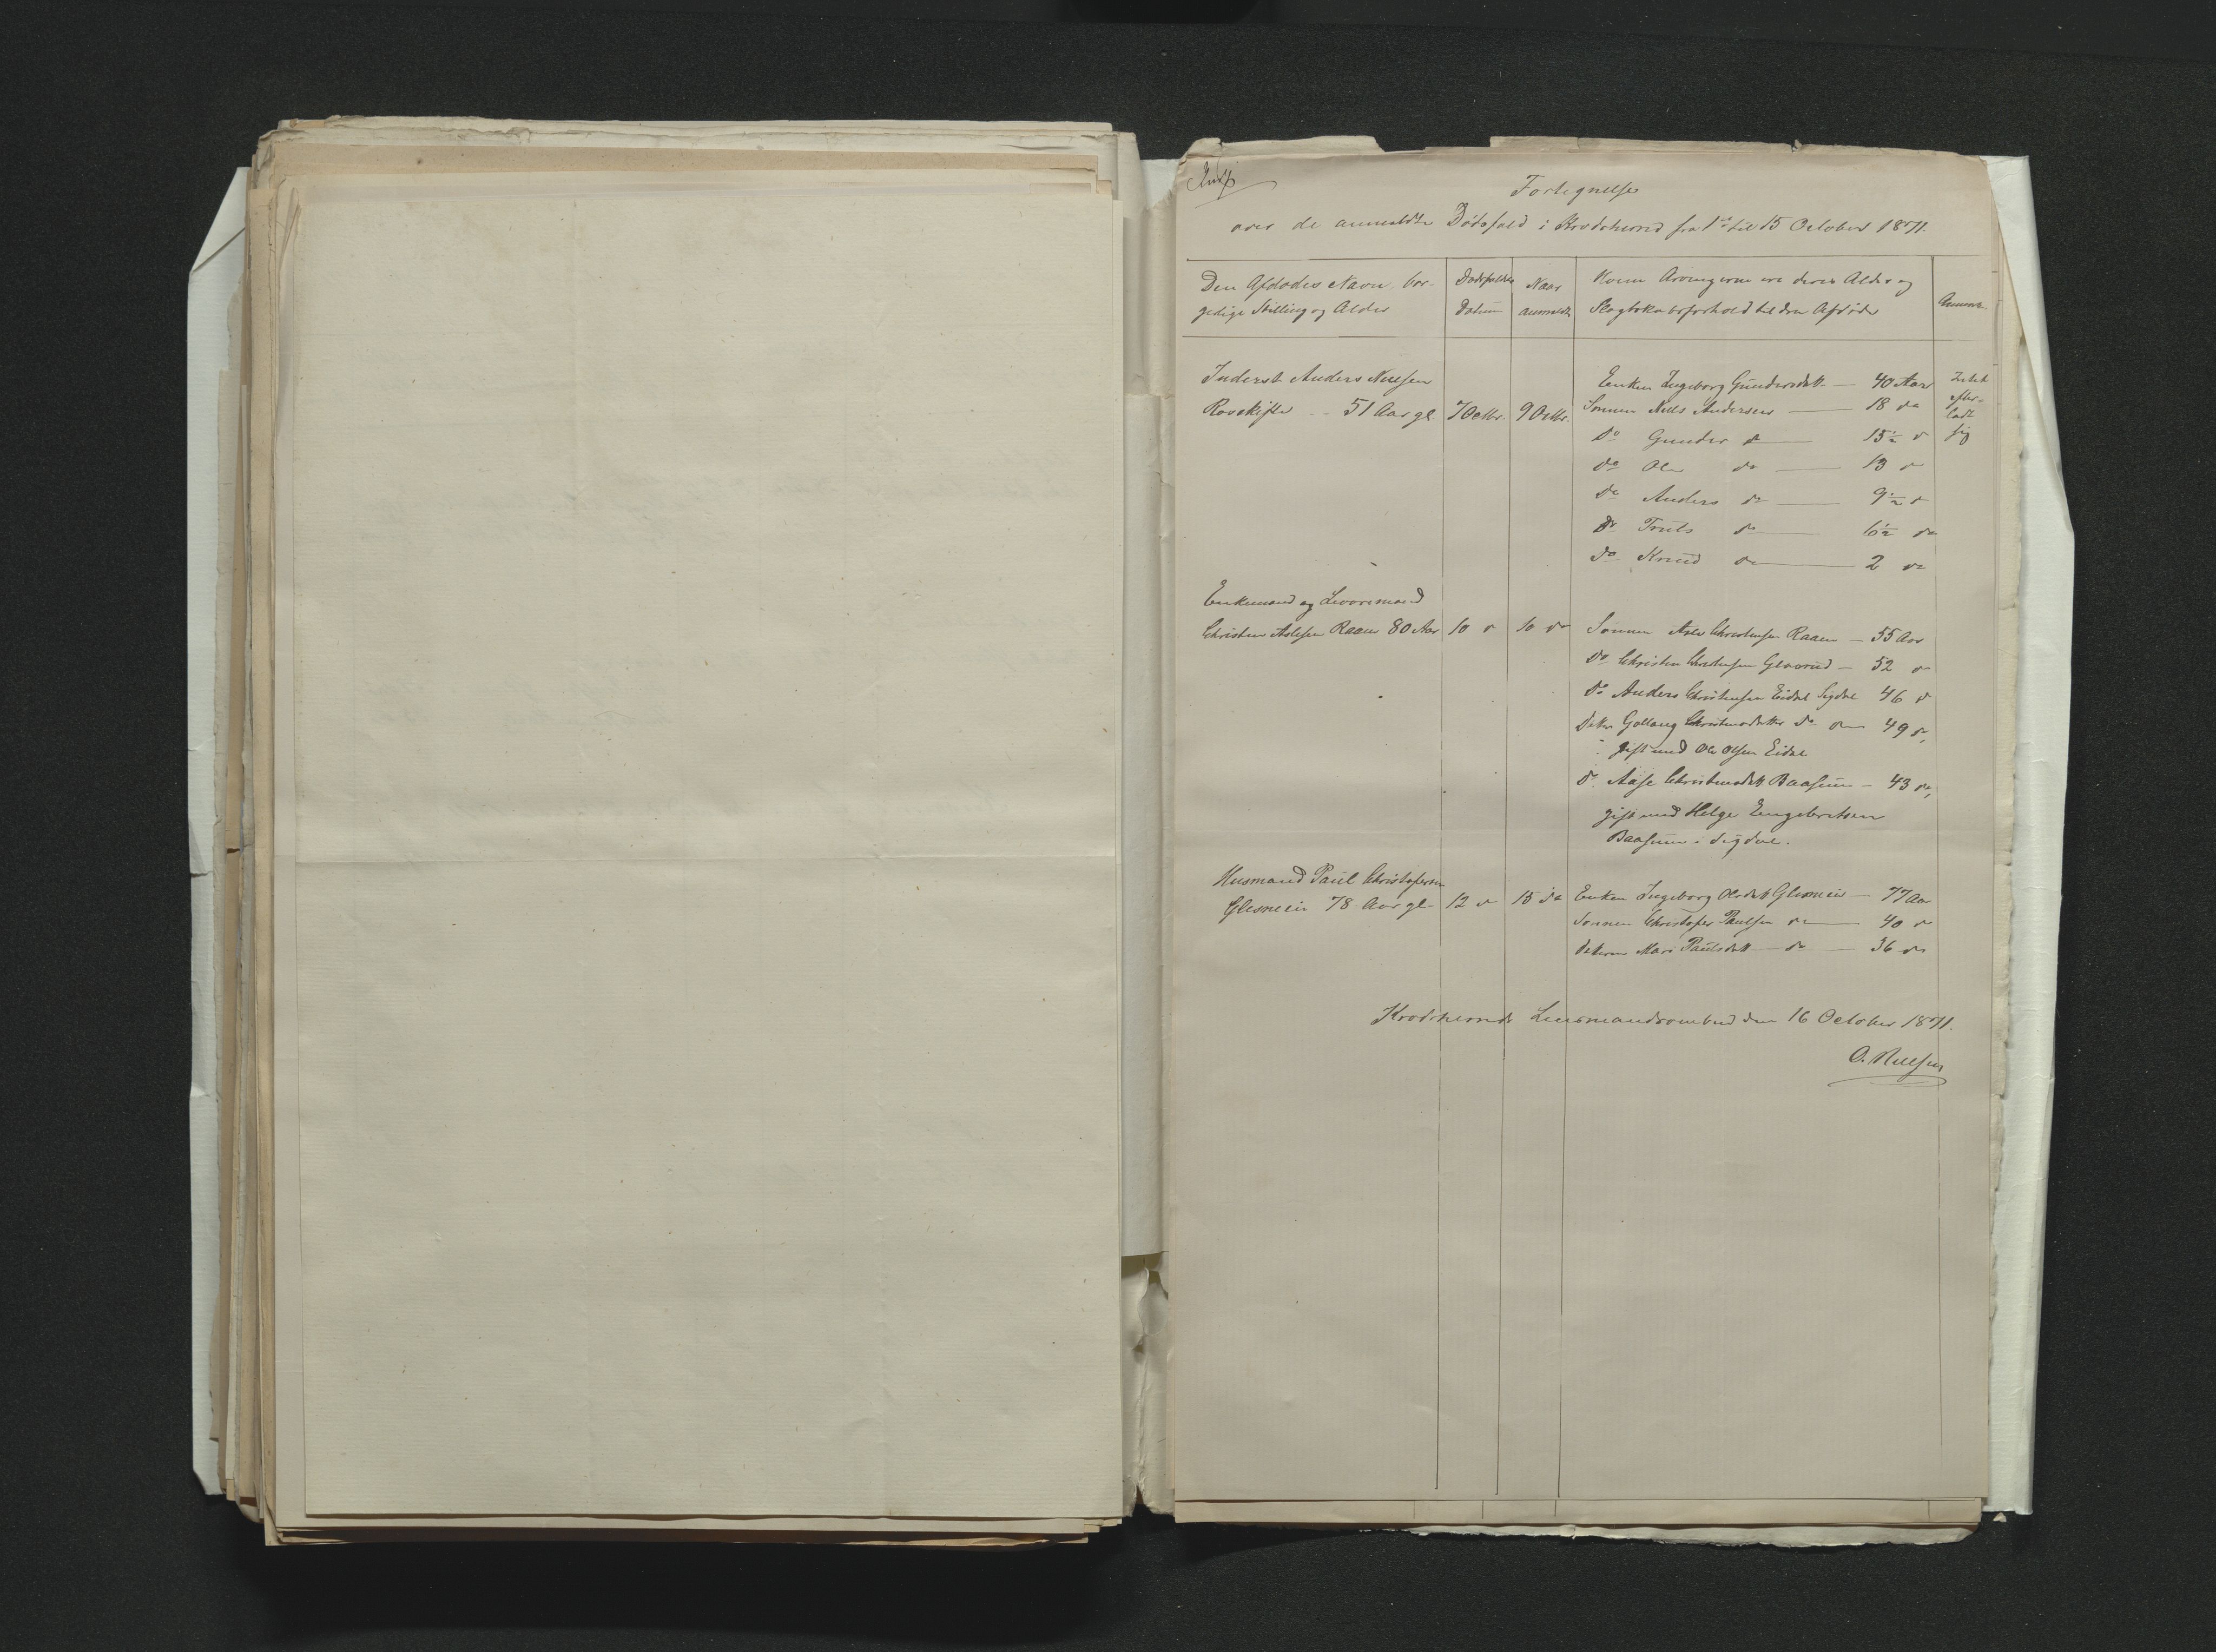 Fortegnelse
over de anmeldte Dødsfald i Krødsherred fra 1ste til 15 October 1871.
Den Afdødes Navn, bor-
gerlige Stilling og Alder
Dødsfaldets
Datum
Naar
anmeldt
Hvem Arvingerne ere deres Alder og
Slægtskabsforhold til den Afdøde
Anmærk.
Inderst Anders Nielsen
51 Aar gl. 7 Octbr. 9 Octbr.
Enken Ingeborg Gundersdatt. — 40 Aar
Sønnen Niels Andersen — 18 do
do Gunder do — 15½ d
do Ole do — 13 d
do Anders do — 9½ d
do Truls do — 6½ do
do Knud do — 2 do
Intet
efter-
ladt
sig
Enkemand og Livøremand
Christen Aslesen Raaen 80 Aar 10 d 10 do
Sønnen Asle Christensen Raaen — 55 Aar
do Christen Christensen — 52 d
do Anders Christensen Eidal Sigdal 46 d
Datter Gollaug Christensdatter do do 49 d,
gift med Ole Olsen Eidal
do Aase Christensdatt Baasum — 43 do,
gift med Helge Engebretsen
Baasum i Sigdal.
Husmand Paul Christofersen
Glesneeie 78 Aar gl. 12 d 15 do
Enken Ingeborg Olsdatt Glesneeie — 77 Aar
Sønnen Christofer Paulsen do — 40 d
Datteren Mari Paulsdatt — do — 36 do
Krødsherreds Lensmandsombud den 16 October 1871.
O. Nielsen